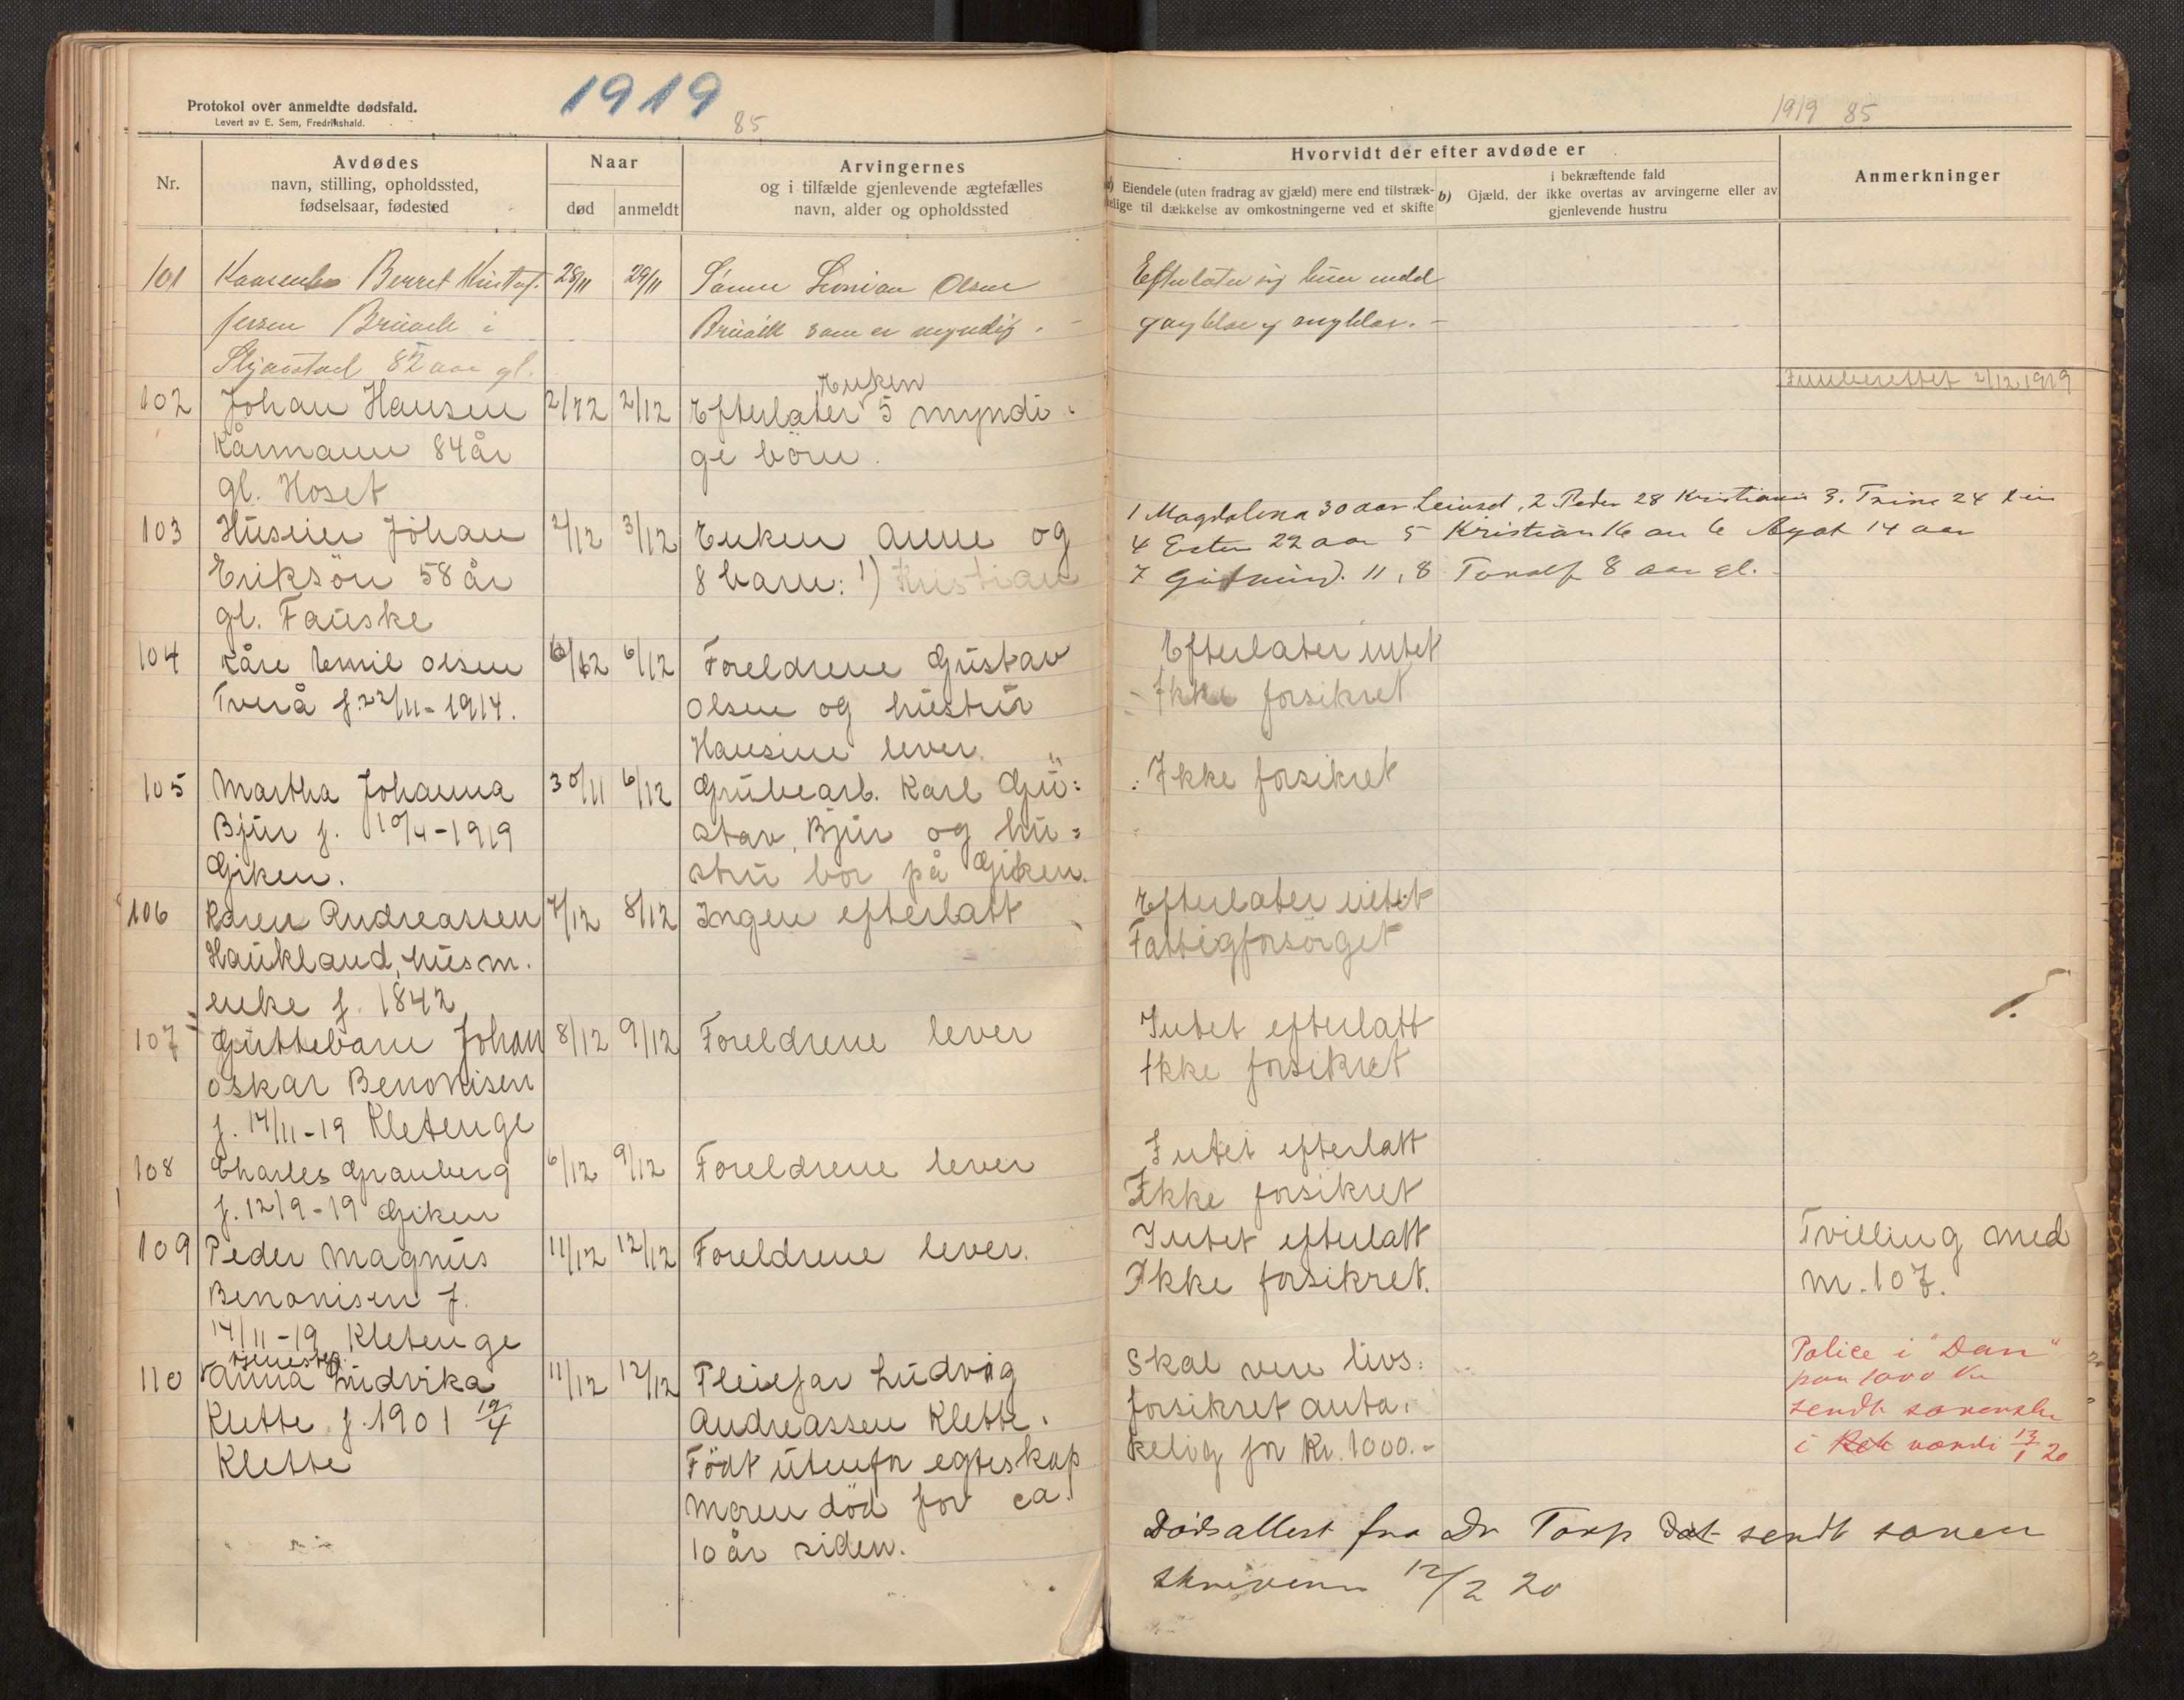 Protokol over anmeldte dødsfald.
Levert av E. Sem, Fredrikshald.
1919
85
1919 85
Nr.
Avdødes
navn, stilling, opholdssted,
fødselsaar, fødested
Naar
død
anmeldt
Arvingernes
og i tilfælde gjenlevende ægtefælles
navn, alder og opholdssted
Hvorvidt der efter avdøde er
Eiendele (uten fradrag av gjæld) mere end tilstræk-
kelige til dækkelse av omkostningerne ved et skifte
i bekræftende fald
b) Gjæld, der ikke overtas av arvingerne eller av
gjenlevende hustru
Anmerkninger
101 Berret 28/11 29/11 Olsen
82 aar gl. som er myndig.
Efterlater sig
102 Johan Hansen 2/12 2/12 Efterlater Enken 5 myndi-
Kårmann 84 år ge börn.
gl. Hoset
2/12 1919
103 Husein Johan 2/12 3/12 Enken Anne og
Eriksön 58 år 8 barn: 1) Kristian
gl. Fauske
1 Magdalena 30 aar Leivset, 2. Peder 28 Kristiania 3. Trine 24
4 Ester 22 aar 5 Kristian 16 aar 6 Agat 14 aar
7 11, 8 Toralf 8 aar gl.
104 Kåre Emil Olsen 6/12 6/12 Foreldrene Gustav
Tverå f. 22/11-1914. Olsen og hustru
Hansine lever.
Efterlater intet
Ikke forsikret
105 Martha Johanna 30/11 6/12 Grubearb. Karl Gu:
Bjur f. 10/4-1919 stav Bjur og hu:
Giken. stru bor på Giken.
Ikke forsikret
106 Karen Andreassen 7/12 8/12 Ingen efterlatt
Haukland, husm.
enke f. 1842
Efterlater intet
Fattigforsörget
107 Guttebarn Johan 8/12 9/12 Foreldrene lever
Oskar Benonisen
f. 14/11-19 Kletenge
Intet efterlatt
Ikke forsikret
108 Charles Granberg 6/12 9/12 Foreldrene lever
f. 12/9-19 Giken
Intet efterlatt
Ikke forsikret
109 Peder Magnus 11/12 12/12 Foreldrene lever.
Benonisen f.
14/11-19 Kletenge
Intet efterlatt
Ikke forsikret.
Tvilling med
nr. 107.
110 tjenestep. Anna Ludvika 11/12 12/12 Pleiefar Ludvig
Klette f. 1901 19/4 Andreassen Klette.
Klette Födt utenfor egteskap
Moren död for ca.
10 år siden.
Skal vere livs:
forsikret anta:
kelig for Kr. 1000.-
Police i "Dan"
paa 1000 Kr
sendt sorenskr
i Rek verdi 13/1 20
Dødsattest fra Dr Torp Dat sendt soren
skriveren 12/2 20